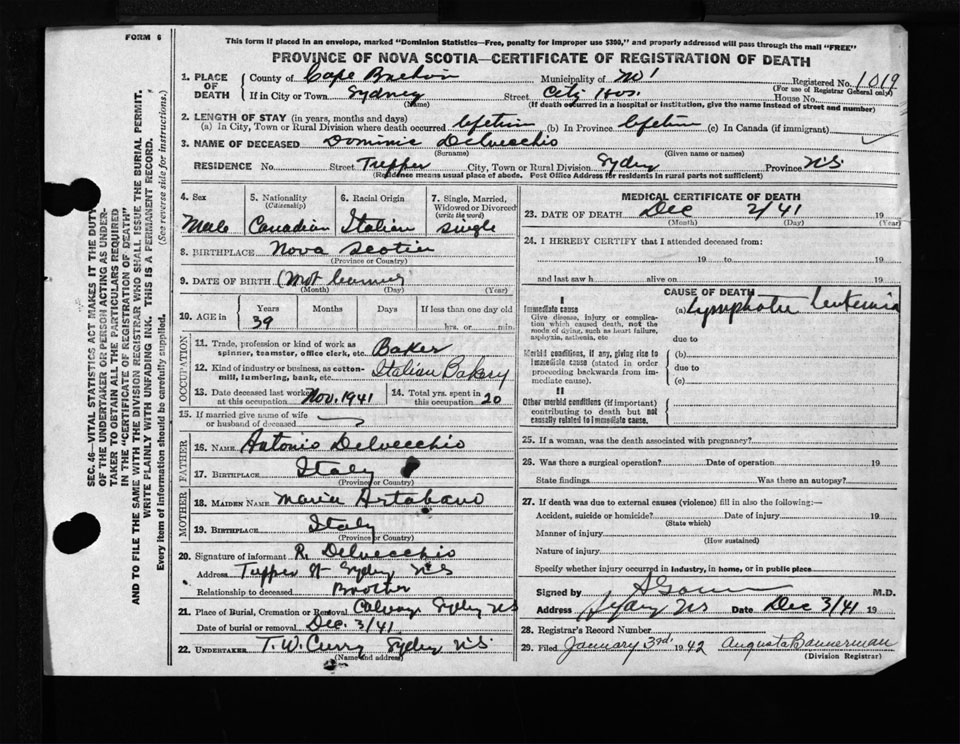 FORM 6
This form if placed in an envelope, marked "Dominion Statistics—Free, penalty for improper use $300," and properly addressed will pass through the mail "FREE"
PROVINCE OF NOVA SCOTIA—CERTIFICATE OF REGISTRATION OF DEATH
SEC. 46—VITAL STATISTICS ACT MAKES IT THE DUTY
OF THE UNDERTAKER OR PERSON ACTING AS UNDER-
TAKER TO OBTAIN ALL THE PARTICULARS REQUIRED
IN THE "CERTIFICATE OF REGISTRATION OF DEATH"
AND TO FILE THE SAME WITH THE DIVISION REGISTRAR WHO SHALL ISSUE THE BURIAL PERMIT.
WRITE PLAINLY WITH UNFADING INK. THIS IS A PERMANENT RECORD.
Every item of information should be carefully supplied. (See reverse side for instructions.)
1. PLACE OF DEATH County of Cape Breton Municipality of No 1 Registered No. 1019
(For use of Registrar General only)
If in City or Town Sydney Street City Hos. House No.
(Name) (If death occurred in a hospital or institution, give the name instead of street and number)
2. LENGTH OF STAY (in years, months and days)
(a) In City, Town or Rural Division where death occurred lifetime (b) In Province lifetime (c) In Canada (if immigrant)
3. NAME OF DECEASED Dominic Delvecchio
(Surname) (Given name or names)
RESIDENCE No. Street Tupper City, Town or Rural Division Sydney Province N.S.
(Residence means usual place of abode. Post Office Address for residents in rural parts not sufficient)
4. Sex 5. Nationality (Citizenship) 6. Racial Origin 7. Single, Married, Widowed or Divorced (write the word)
Male Canadian Italian Single
8. BIRTHPLACE Nova Scotia
(Province or Country)
9. DATE OF BIRTH
(Month) (Day) (Year)
10. AGE in Years Months Days If less than one day old
39 hrs. or min.
OCCUPATION
11. Trade, profession or kind of work as spinner, teamster, office clerk, etc. Baker
12. Kind of industry or business, as cotton-mill, lumbering, bank, etc. Italian Bakery
13. Date deceased last worked at this occupation Nov. 1941 14. Total yrs. spent in this occupation 20
15. If married give name of wife or husband of deceased
FATHER
16. NAME Antonio Delvecchio
17. BIRTHPLACE Italy
(Province or Country)
MOTHER
18. MAIDEN NAME Maria Artabano
19. BIRTHPLACE Italy
(Province or Country)
20. Signature of informant R. Delvecchio
Address Tupper St Sydney N.S
Relationship to deceased Brother
21. Place of Burial, Cremation or Removal Calvary Sydney NS
Date of burial or removal Dec. 3/41
22. UNDERTAKER T. W. Curry Sydney N.S
(Name and address)
MEDICAL CERTIFICATE OF DEATH
23. DATE OF DEATH Dec 2/41 19
(Month) (Day) (Year)
24. I HEREBY CERTIFY that I attended deceased from:
19 to 19
and last saw h alive on 19
CAUSE OF DEATH
I
Immediate cause (a) Lymphatic Leukemia
Give disease, injury or complication which caused death, not the mode of dying, such as heart failure, asphyxia, asthenia, etc
due to
Morbid conditions, if any, giving rise to immediate cause (stated in order proceeding backwards from immediate cause). (b)
due to
(c)
II
Other morbid conditions (if important) contributing to death but not causally related to immediate cause.
25. If a woman, was the death associated with pregnancy?
26. Was there a surgical operation? Date of operation 19
State findings Was there an autopsy?
27. If death was due to external causes (violence) fill in also the following:—
Accident, suicide or homicide? Date of injury 19
(State which)
Manner of injury
(How sustained)
Nature of injury
Specify whether injury occurred in industry, in home, or in public place
Signed by M.D.
Address Sydney NS Date Dec 3/41 19
28. Registrar's Record Number
29. Filed January 3rd. 1942 Augusta Bannerman
(Division Registrar)